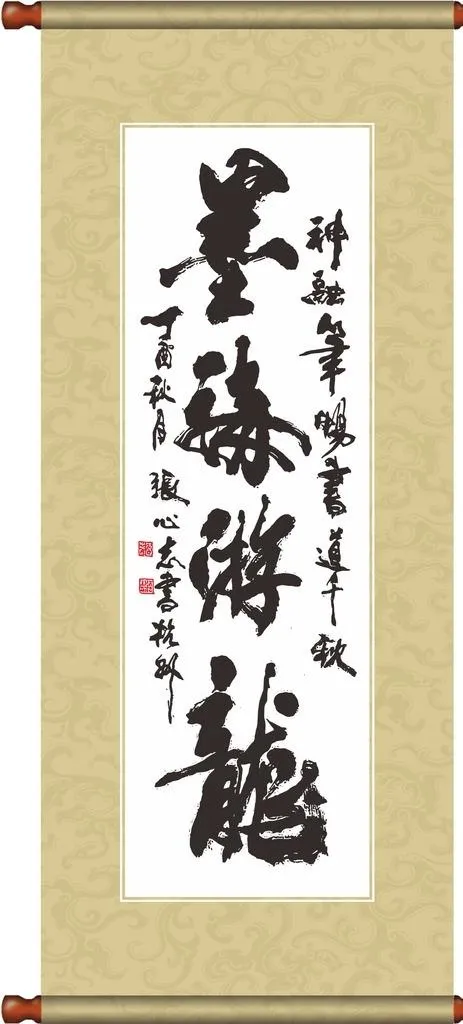 神融筆暢書道千秋
墨海游龍
丁酉秋月 張心志書於鄭